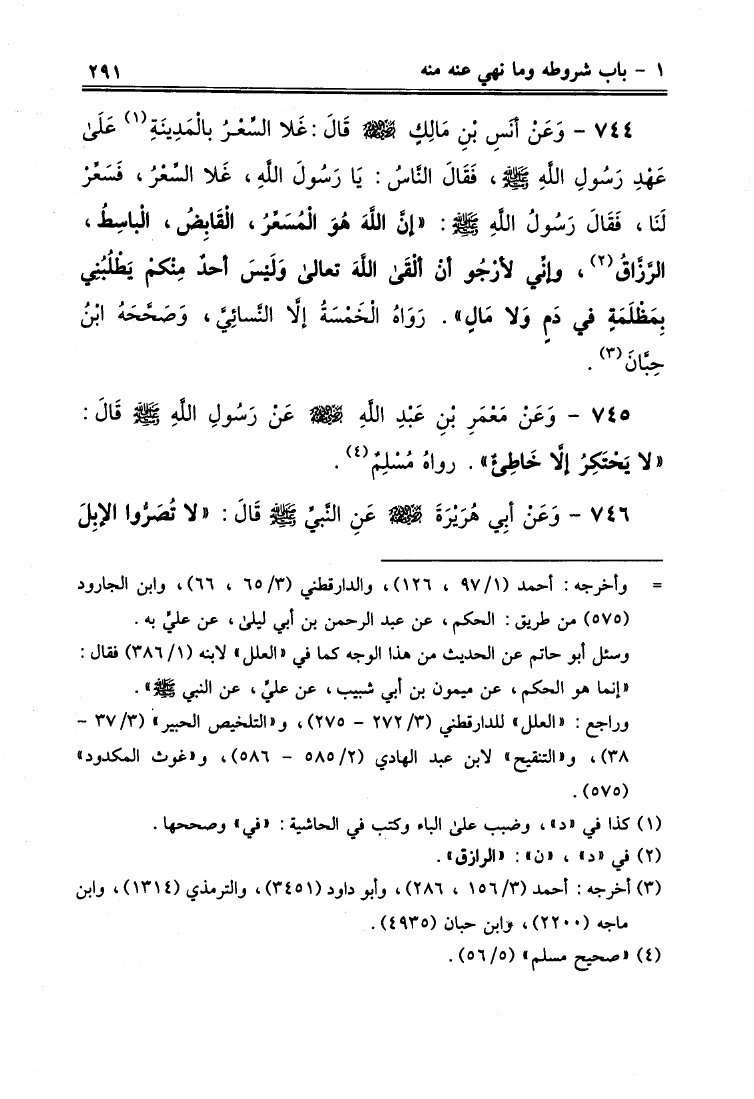 ١ - باب شروطه وما نهي عنه منه ٢٩١
٧٤٤ - وَعَنْ أَنَسِ بْنِ مَالِكٍ رضي الله عنه قَالَ: غَلا السِّعْرُ بالْمَدِينَةِ(١) عَلَىٰ
عَهْدِ رَسُولِ اللَّهِ ﷺ، فَقَالَ النَّاسُ: يَا رَسُولَ اللَّهِ، غَلا السِّعْرُ، فَسَعِّرْ
لَنَا، فَقَالَ رَسُولُ اللَّهِ ﷺ: «إِنَّ اللَّهَ هُوَ الْمُسَعِّرُ، الْقَابِضُ، الْباسِطُ،
الرَّزَّاقُ(٢)، وإنِّي لأرْجُو أنْ ألْقَىٰ اللَّهَ تعالىٰ وَلَيْسَ أحدٌ مِنْكمْ يَطْلُبُنِي
بِمَظْلَمَةٍ في دَمٍ وَلا مَالٍ». رَوَاهُ الْخَمْسَةُ إلَّا النَّسائِيَّ، وَصَحَّحَهُ ابْنُ
حِبَّانَ(٣).
٧٤٥ - وَعَنْ مَعْمَرِ بْنِ عَبْدِ اللَّهِ رضي الله عنه عَنْ رَسُولِ اللَّهِ ﷺ قَالَ:
«لا يَحْتَكِرُ إلَّا خَاطِئٌ». رواهُ مُسْلِمٌ(٤).
٧٤٦ - وَعَنْ أبِي هُرَيْرَةَ رضي الله عنه عَنِ النَّبِيِّ ﷺ قَالَ: «لا تُصَرُّوا الإبِلَ
= وأخرجه: أحمد (١/ ٩٧، ١٢٦)، والدارقطني (٣/ ٦٥، ٦٦)، وابن الجارود
(٥٧٥) من طريق: الحكم، عن عبد الرحمن بن أبي ليلىٰ، عن عليٍّ به.
وسئل أبو حاتم عن الحديث من هذا الوجه كما في «العلل» لابنه (١/ ٣٨٦) فقال:
«إنما هو الحكم، عن ميمون بن أبي شبيب، عن عليٍّ، عن النبي ﷺ».
وراجع: «العلل» للدارقطني (٣/ ٢٧٢ - ٢٧٥)، و«التلخيص الحبير» (٣/ ٣٧ -
٣٨)، و«التنقيح» لابن عبد الهادي (٢/ ٥٨٥ - ٥٨٦)، و«غوث المكدود»
(٥٧٥).
(١) كذا في «د»، وضبب علىٰ الباء وكتب في الحاشية: «في» وصححها.
(٢) في «د»، «ن»: «الرازق».
(٣) أخرجه: أحمد (٣/ ١٥٦، ٢٨٦)، وأبو داود (٣٤٥١)، والترمذي (١٣١٤)، وابن
ماجه (٢٢٠٠)، وابن حبان (٤٩٣٥).
(٤) «صحيح مسلم» (٥/ ٥٦).